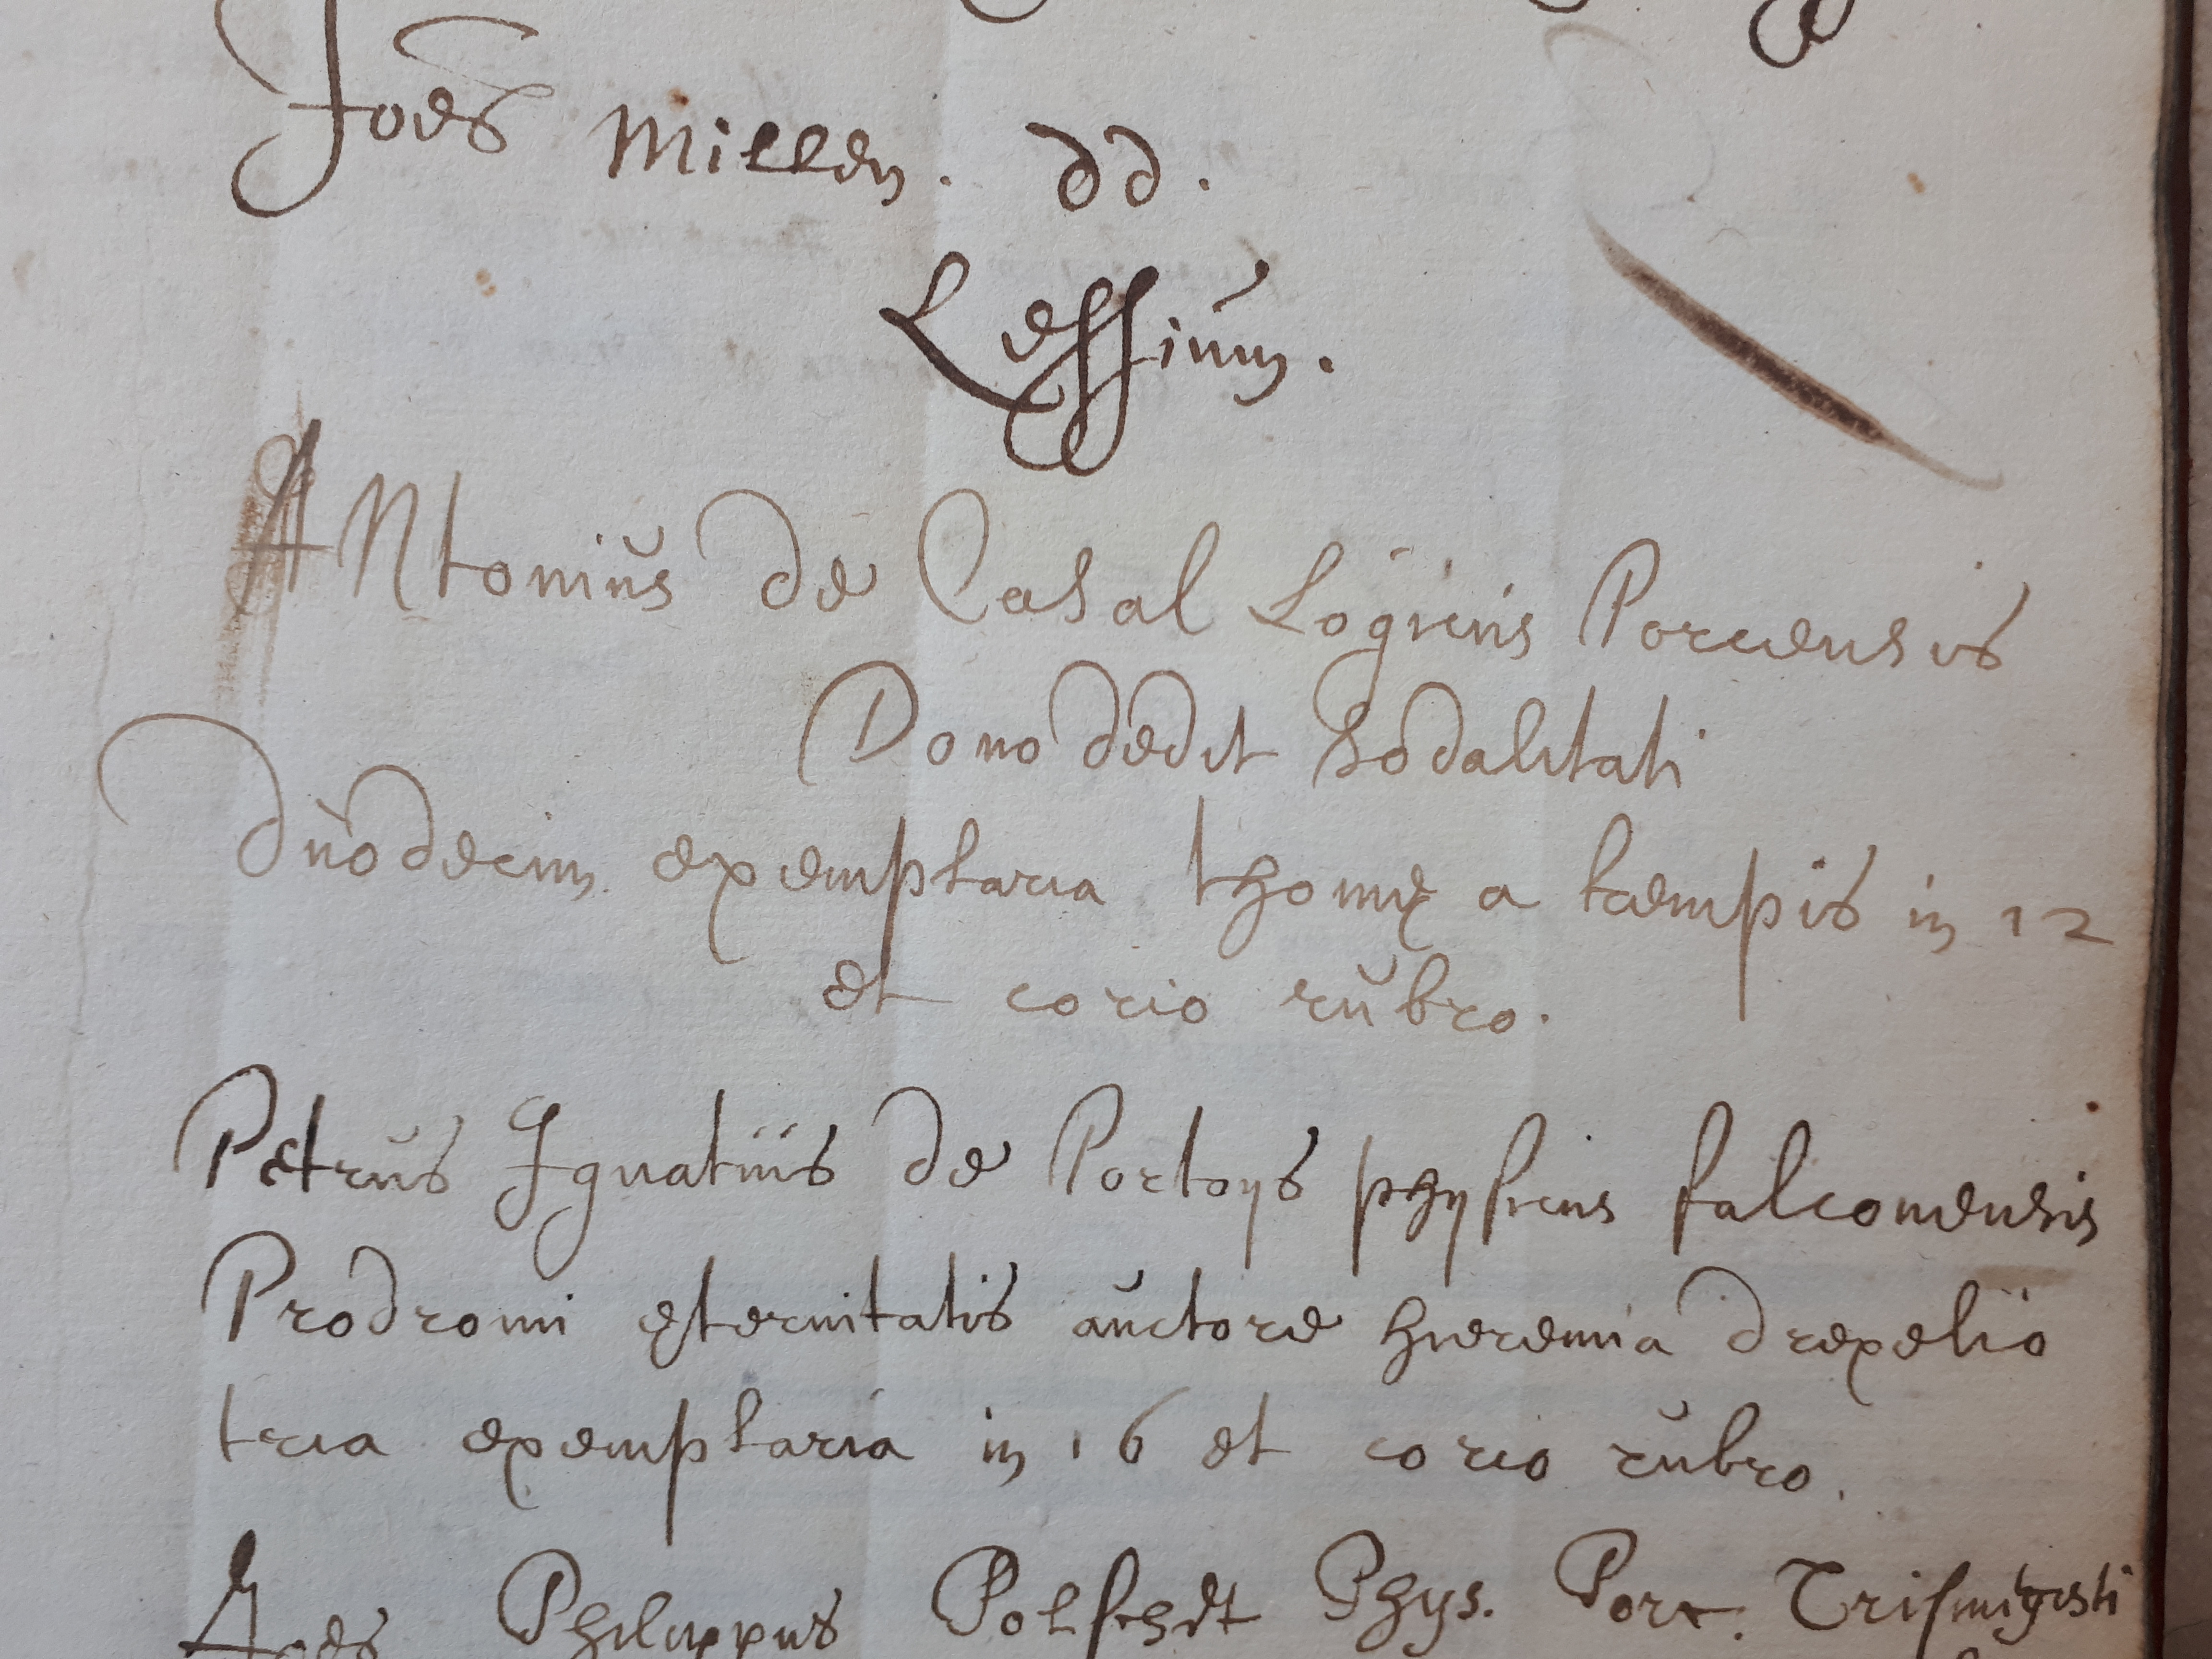 Joes Millen. DD.
Lessium.
Antonius de Casal Logicus Porcensis
Dono dedit sodalitati
Duodecim exemplaria thomę a kempis in 12
et corio rubro.
Petrus Ignatius de Portoys physicus falconensis
Prodromi ęternitatis auctore hieremia drexelio
tria exemplaria in 16 et corio rubro.
Joes Philippus Phys. Porc. Trismigisti